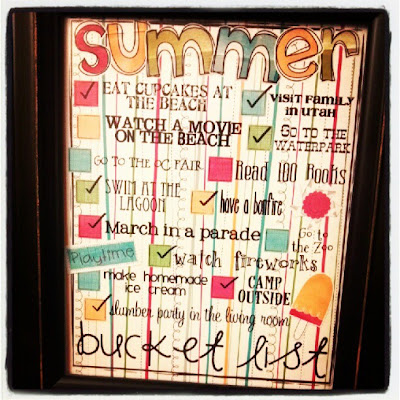 summer
EAT CUPCAKES AT
THE BEACH
VISIT FAMILY
IN UTAH
WATCH A MOVIE
ON THE BEACH
GO TO THE
WATERPARK
GO TO THE OC FAIR
Read 100 Books
SWIM AT THE
LAGOON
have a bonfire
March in a parade
Go to
the Zoo
Playtime
watch fireworks
make homemade
ice cream
CAMP
OUTSIDE
slumber party in the living room
bucket list